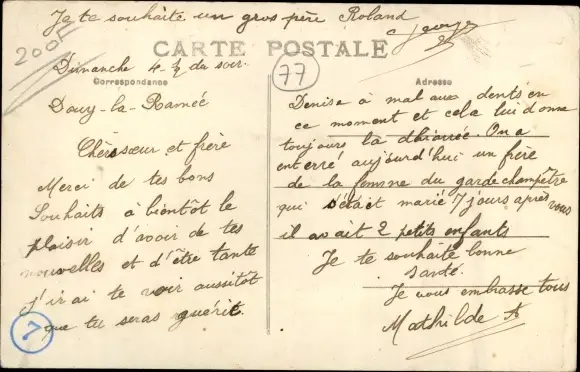 Je te souhaite un gros père Roland
Georges
200F
CARTE POSTALE
77
Dimanche 4-½ du soir.
Correspondance
Douy-la-Ramée
Chère sœur et frère
Merci de tes bons
Souhaits à bientôt le
plaisir d'avoir de tes
nouvelles et d'être tante
j'irai te voir aussitôt
que tu seras guérit.
7
Adresse
Denise à mal aux dents en
ce moment et cela lui donne
toujours la dhiarrée. On a
enterré aujourd'hui un frère
de la femme du garde champêtre
qui s'était marié 7 jours après vous
il avait 2 petits enfants
Je te souhaite bonne
Santé.
Je vous embrasse tous
Mathilde A